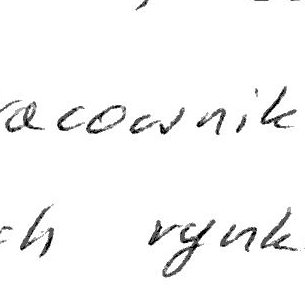 racownik
ch rynk